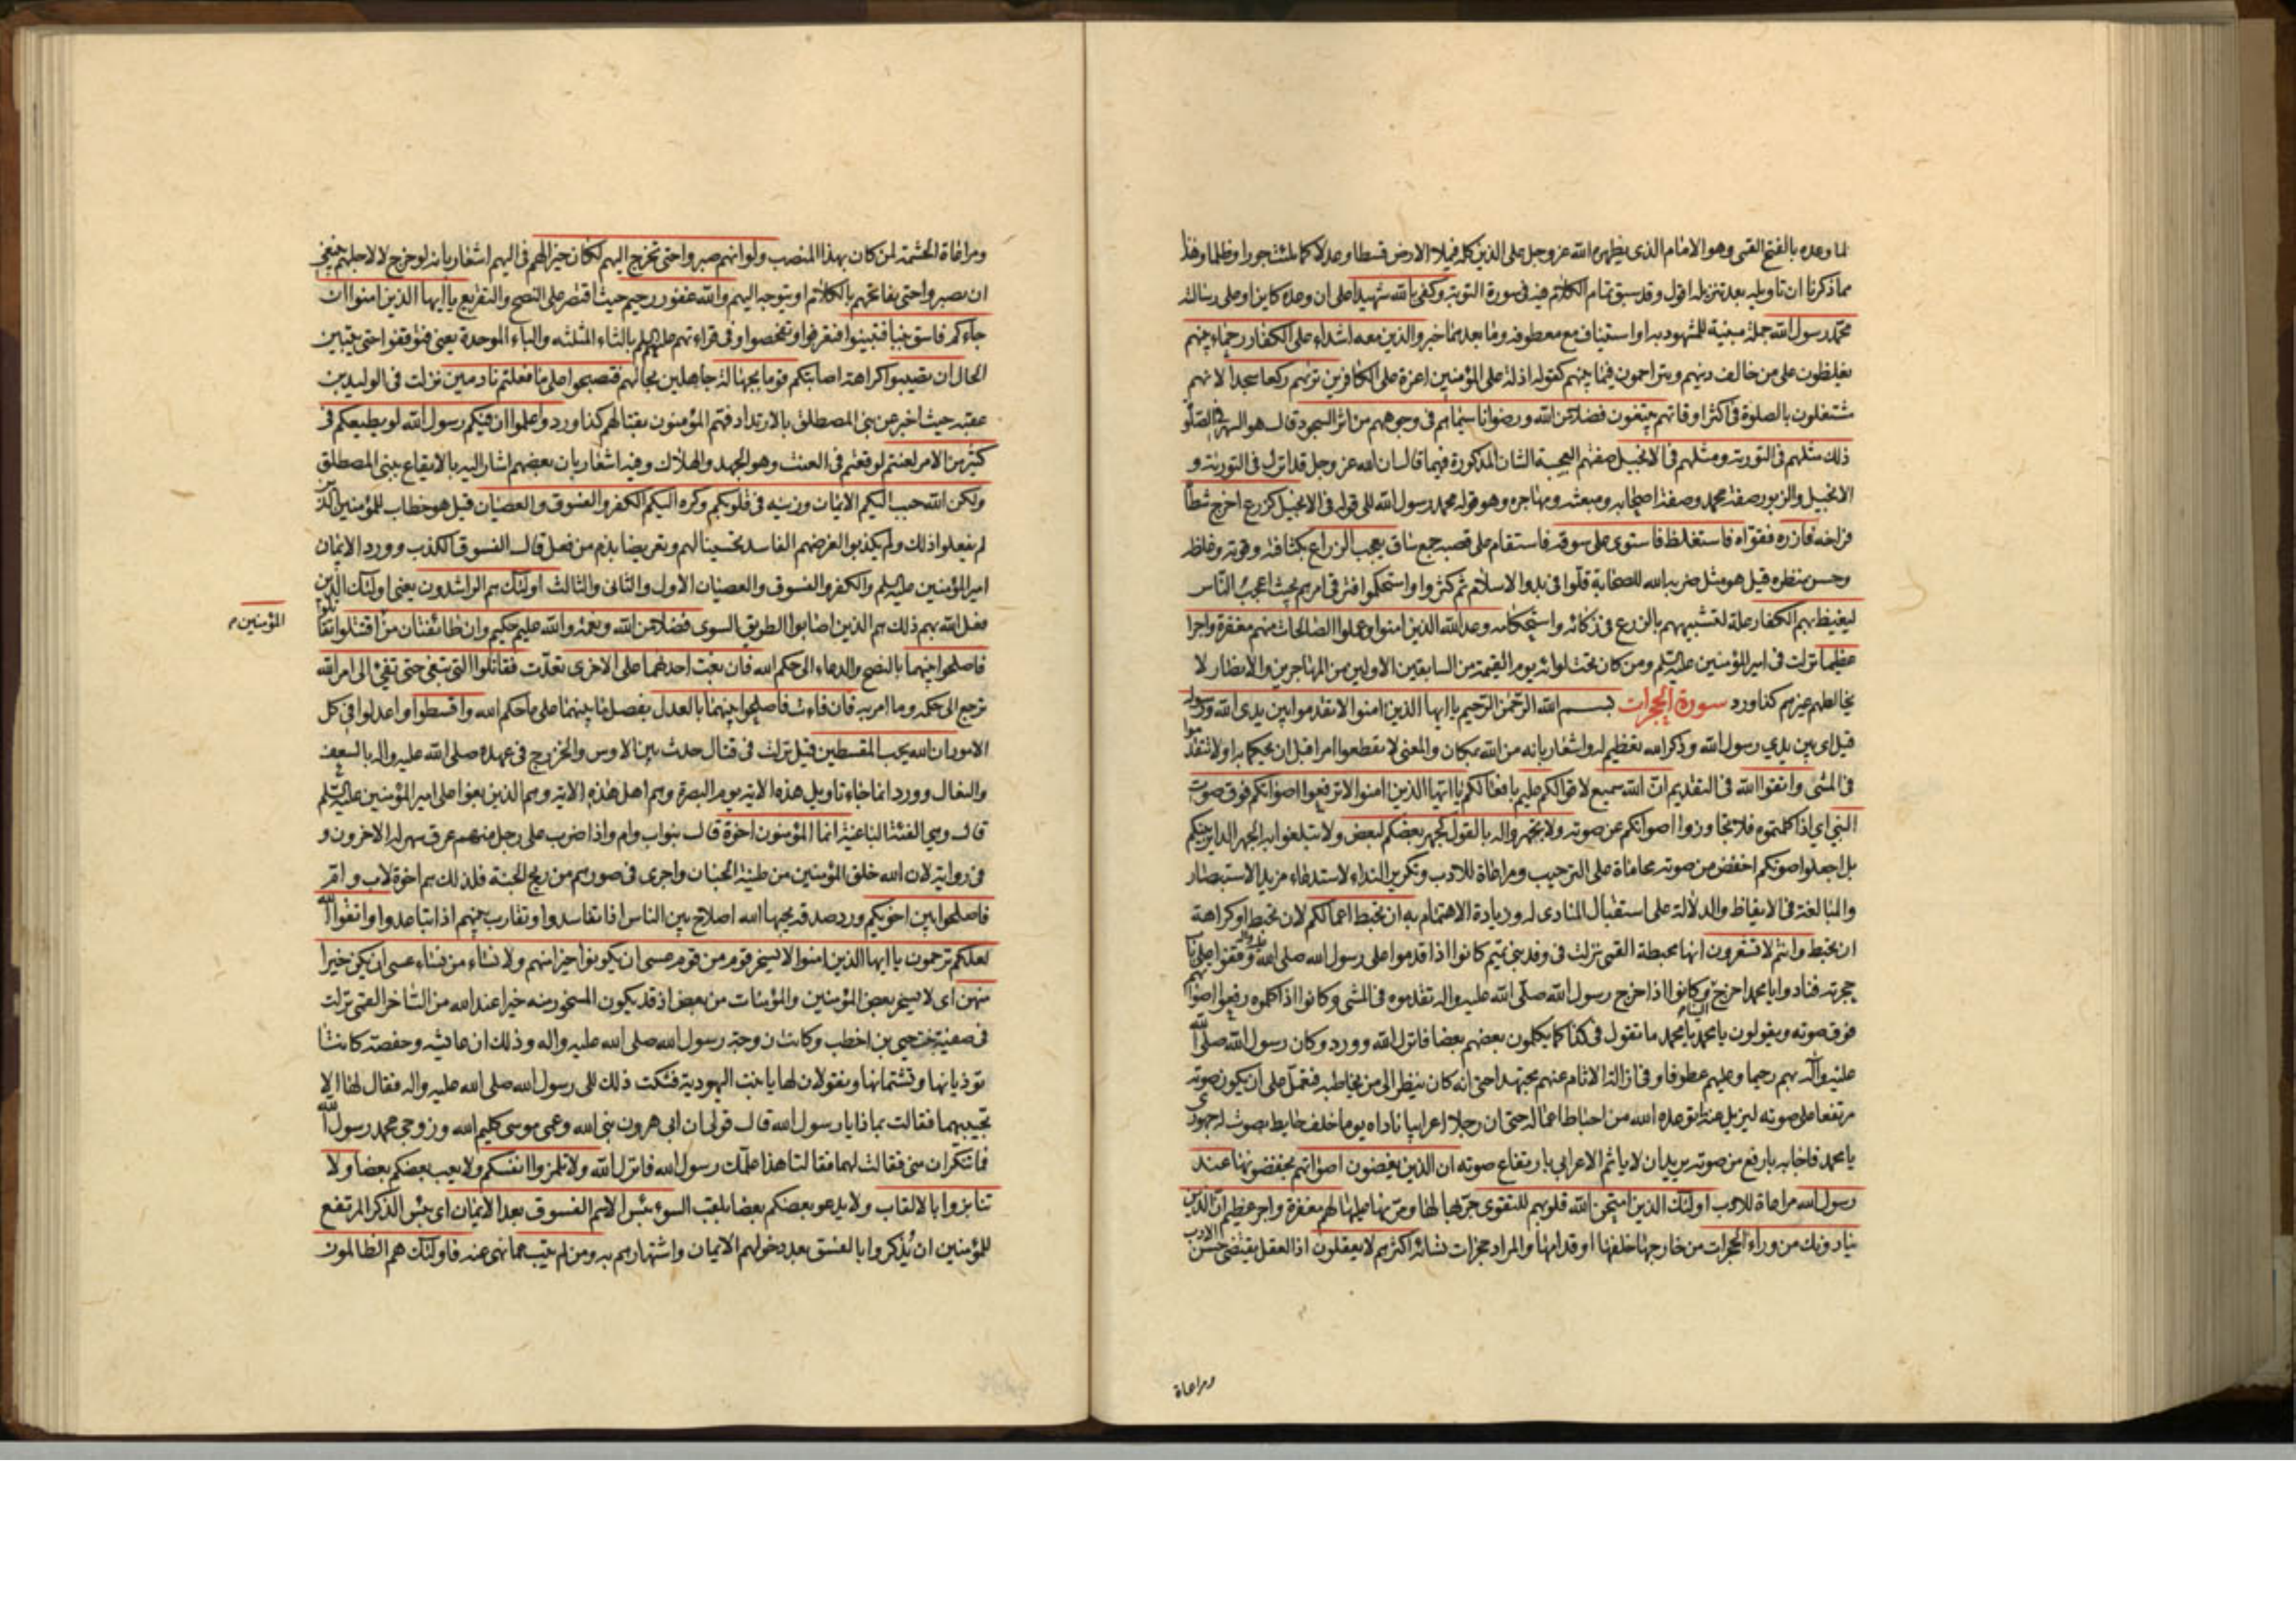 لما وعده بالفتح القمى وهو الامام الذى يظهره الله عز وجل على الدين كله فيملا الارض قسطا وعدلا كما ملئت جورا وظلما وهذا
مما ذكرنا ان تاويله بعد تنزيله اقول وقد سبق تمام الكلام فيه فى سورة التوبة وكفى بالله شهيدا على ان وعده كاين او على رسالته
محمد رسول الله جملة مبينة للمشهود به او استيناف مع معطوفه وما بعدهما خبر والذين معه اشداء على الكفار رحماء بينهم
يغلظون على من خالف دينهم ويتراحمون فيما بينهم كقوله اذلة على المؤمنين اعزة على الكافرين تريهم ركعا سجدا لانهم
مشتغلون بالصلوة فى اكثر اوقاتهم يبتغون فضلا من الله ورضوانا سيماهم فى وجوههم من اثر السجود قال هو السهر فى الصلوة
ذلك مثلهم فى التورية ومثلهم فى الانجيل صفتهم العجيبة الشان المذكورة فيهما قال ان الله عز وجل قد انزل فى التورية و
الانجيل والزبور صفة محمد وصفة اصحابه ومبعثه ومهاجره وهو قوله محمد رسول الله الى قوله فى الانجيل كزرع اخرج شطأه
فراخه فازره فقواه فاستغلظ فاستوى على سوقه فاستقام على قصبه جمع ساق يعجب الزراع بكثافته وقوته وغلظه
وحسن منظره قيل هو مثل ضربه الله للصحابة قلوا فى بدو الاسلام ثم كثروا واستحكموا فترقى امرهم بحيث اعجب الناس
ليغيظ بهم الكفار علة لتشبيههم بالزرع فى زكائه واستحكامه وعد الله الذين امنوا وعملوا الصالحات منهم مغفرة واجرا
عظيما نزلت فى امير المؤمنين عليه السلم ومن كان تحت لوائه يوم القيمة من السابقين الاولين من المهاجرين والانصار لا
يخالطهم غيرهم كذا ورد سورة الحجرات بسم الله الرحمن الرحيم يا ايها الذين امنوا لا تقدموا بين يدى الله ورسوله
قيل اى بين يدي رسول الله وذكر الله تعظيم له واشعار بانه من الله بمكان والمعنى لا تقطعوا امرا قبل ان يحكما به او لا تتقدموا
فى المشى واتقوا الله فى التقديم ان الله سميع لاقوالكم عليم بافعالكم يا ايها الذين امنوا لا ترفعوا اصواتكم فوق صوت
النبى اى اذا كلمتموه فلا تجاوزوا اصواتكم عن صوته ولا تجهروا له بالقول كجهر بعضكم لبعض ولا تبلغوا به الجهر الداير بينكم
بل اجعلوا صوتكم اخفض من صوته محاماة على الترحيب ومراعاة للادب وتكرير النداء لاستدعاء مزيد الاستبصار
والمبالغة فى الايقاظ والدلالة على استقبال المنادى له وزيادة الاهتمام به ان تحبط اعمالكم لان تحبط او كراهة
ان تحبط وانتم لا تشعرون انها محبطة القمى نزلت فى وفد بنى تميم كانوا اذا قدموا على رسول الله صلى الله عليه واله وقفوا على باب
حجرته فنادوا يا محمد اخرج الينا وكانوا اذا خرج رسول الله صلى الله عليه واله تقدموه فى المشى وكانوا اذا كلموه رفعوا اصواتهم
فوق صوته ويقولون يا محمد يا محمد ما تقول فى كذا كما يكلمون بعضهم بعضا فانزل الله وورد وكان رسول الله صلى الله
عليه واله بهم رحيما وعليهم عطوفا وفى ازالة الاثام عنهم مجتهدا حتى انه كان ينظر الى من يخاطبه فتعمل على ان يكون صوته
مرتفعا على صوته ليزيل عنه ما توعده الله من احباط اعماله حتى ان رجلا اعرابيا ناداه يوما خلف حايط بصوت له جهورى
يا محمد فاجابه بارفع من صوته يريد ان لا ياثم الاعرابى بارتفاع صوته ان الذين يغضون اصواتهم يخفضونها عند
رسول الله مراعاة للادب اولئك الذين امتحن الله قلوبهم للتقوى جربها لها ومرنها عليها لهم مغفرة واجر عظيم ان الذين
ينادونك من وراء الحجرات من خارجها خلفها او قدامها والمراد حجرات نسائه اكثرهم لا يعقلون اذ العقل يقتضى حسن الادب
ومراعاة
ومراعاة الحشمة لمن كان بهذا المنصب ولو انهم صبروا حتى تخرج اليهم لكان خيرا لهم فى اليهم اشعار بانه لو خرج لا لاجلهم ينبغى
ان يصبروا حتى يفاتحهم بالكلام او يتوجه اليهم والله غفور رحيم حيث اقتصر على النصح والتقريع يا ايها الذين امنوا ان
جاءكم فاسق بنبا فتبينوا فتعرفوا وتفحصوا وفى قراءتهم عليهم السلم بالثاء المثلثه والباء الموحدة يعنى فتوقفوا حتى يتبين
الحال ان تصيبوا كراهة اصابتكم قوما بجهالة جاهلين بحالهم فتصبحوا على ما فعلتم نادمين نزلت فى الوليد بن
عقبه حيث اخبر عن بنى المصطلق بالارتداد فهم المؤمنون بقتالهم كذا ورد واعلموا ان فيكم رسول الله لو يطيعكم فى
كثير من الامر لعنتم لوقعتم فى العنت وهو الجهد والهلاك وفيه اشعار بان بعضهم اشار اليه بالايقاع ببنى المصطلق
ولكن الله حبب اليكم الايمان وزينه فى قلوبكم وكره اليكم الكفر والفسوق والعصيان قيل هو خطاب للمؤمنين الذين
لم يفعلوا ذلك ولم يكذبوا لغرضهم الفاسد تحسينا لهم وتعريضا بذم من فعل قال الفسوق الكذب وورد الايمان
امير المؤمنين عليه السلم والكفر والفسوق والعصيان الاول والثانى والثالث اولئك هم الراشدون يعنى اولئك الذين
فعل الله بهم ذلك هم الذين اصابوا الطريق السوى فضلا من الله ونعمة والله عليم حكيم وان طائفتان من اقتتلوا تقاتلوا
المؤمنين
فاصلحوا بينهما بالنصح والدعاء الى حكم الله فان بغت احدهما على الاخرى تعدت فقاتلوا التى تبغى حتى تفئ الى امر الله
ترجع الى حكمه وما امر به فان فاءت فاصلحوا بينهما بالعدل بفصل ما بينهما على ما حكم الله واقسطوا واعدلوا فى كل
الامور ان الله يحب المقسطين قيل نزلت فى قتال حدث بين الاوس والخزرج فى عهده صلى الله عليه واله بالسعف
والنعال وورد انما جاء تاويل هذه الاية يوم البصرة وهم اهل هذه الاية وهم الذين بغوا على امير المؤمنين عليه السلم
قال وهى الفئة الباغية انما المؤمنون اخوة قال بنو اب وام واذا ضرب على رجل منهم عرق سهر له الاخرون و
فى رواية لان الله خلق المؤمنين من طينة الجنان واجرى فى صورهم من ريح الجنة فلذلك هم اخوة لاب وام
فاصلحوا بين اخويكم ورد صدقة يحبها الله اصلاح بين الناس اذا تفاسدوا وتقارب بينهم اذا تباعدوا واتقوا الله
لعلكم ترحمون يا ايها الذين امنوا لا يسخر قوم من قوم عسى ان يكونوا خيرا منهم ولا نساء من نساء عسى ان يكن خيرا
منهن اى لا يسخر بعض المؤمنين والمؤمنات من بعض اذ قد يكون المسخور منه خيرا عند الله من الساخر القمى نزلت
فى صفية بنت حيى بن اخطب وكانت زوجة رسول الله صلى الله عليه واله وذلك ان عائشه وحفصة كانتا
توذيانها وتشتمانها وتقولان لها يا بنت اليهودية فشكت ذلك الى رسول الله صلى الله عليه واله فقال لها الا
تجيبيهما فقالت بماذا يا رسول الله قال قولى ان ابى هرون نبى الله وعمى موسى كليم الله وزوجى محمد رسول الله
فما تنكران منى فقالت لهما فقالتا هذا علمك رسول الله فانزل الله ولا تلمزوا انفسكم ولا يعب بعضكم بعضا ولا
تنابزوا بالالقاب ولا يدعو بعضكم بعضا بلقب السوء بئس الاسم الفسوق بعد الايمان اى بئس الذكر المرتفع
للمؤمنين ان يذكروا بالفسق بعد دخولهم الايمان واشتهارهم به ومن لم يتب عما نهى عنه فاولئك هم الظالمون